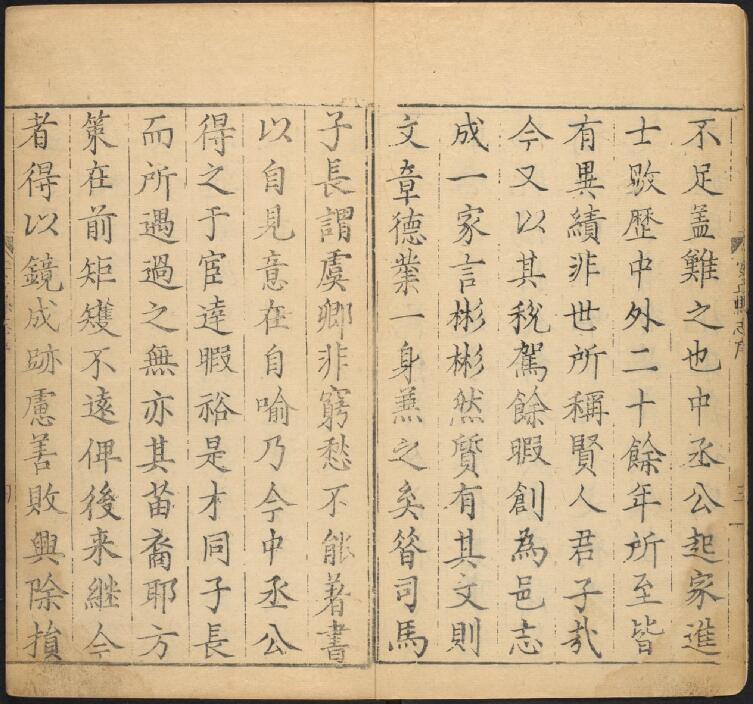 不足盖難之也中丞公起家進
士敭歷中外二十餘年所至皆
有異績非世所稱賢人君子㢤
今又以其稅駕餘暇創為邑志
成一家言彬彬然質有其文則
文章德業一身蕪之矣昝司馬
子長謂虞卿非窮愁不能著書
以自見意在自喻乃今中丞公
得之于宦逹暇裕是才同子長
而所遇過之無亦其苗裔耶方
策在前矩矱不遠俾後来継今
者得以鏡成跡慮善敗興除損